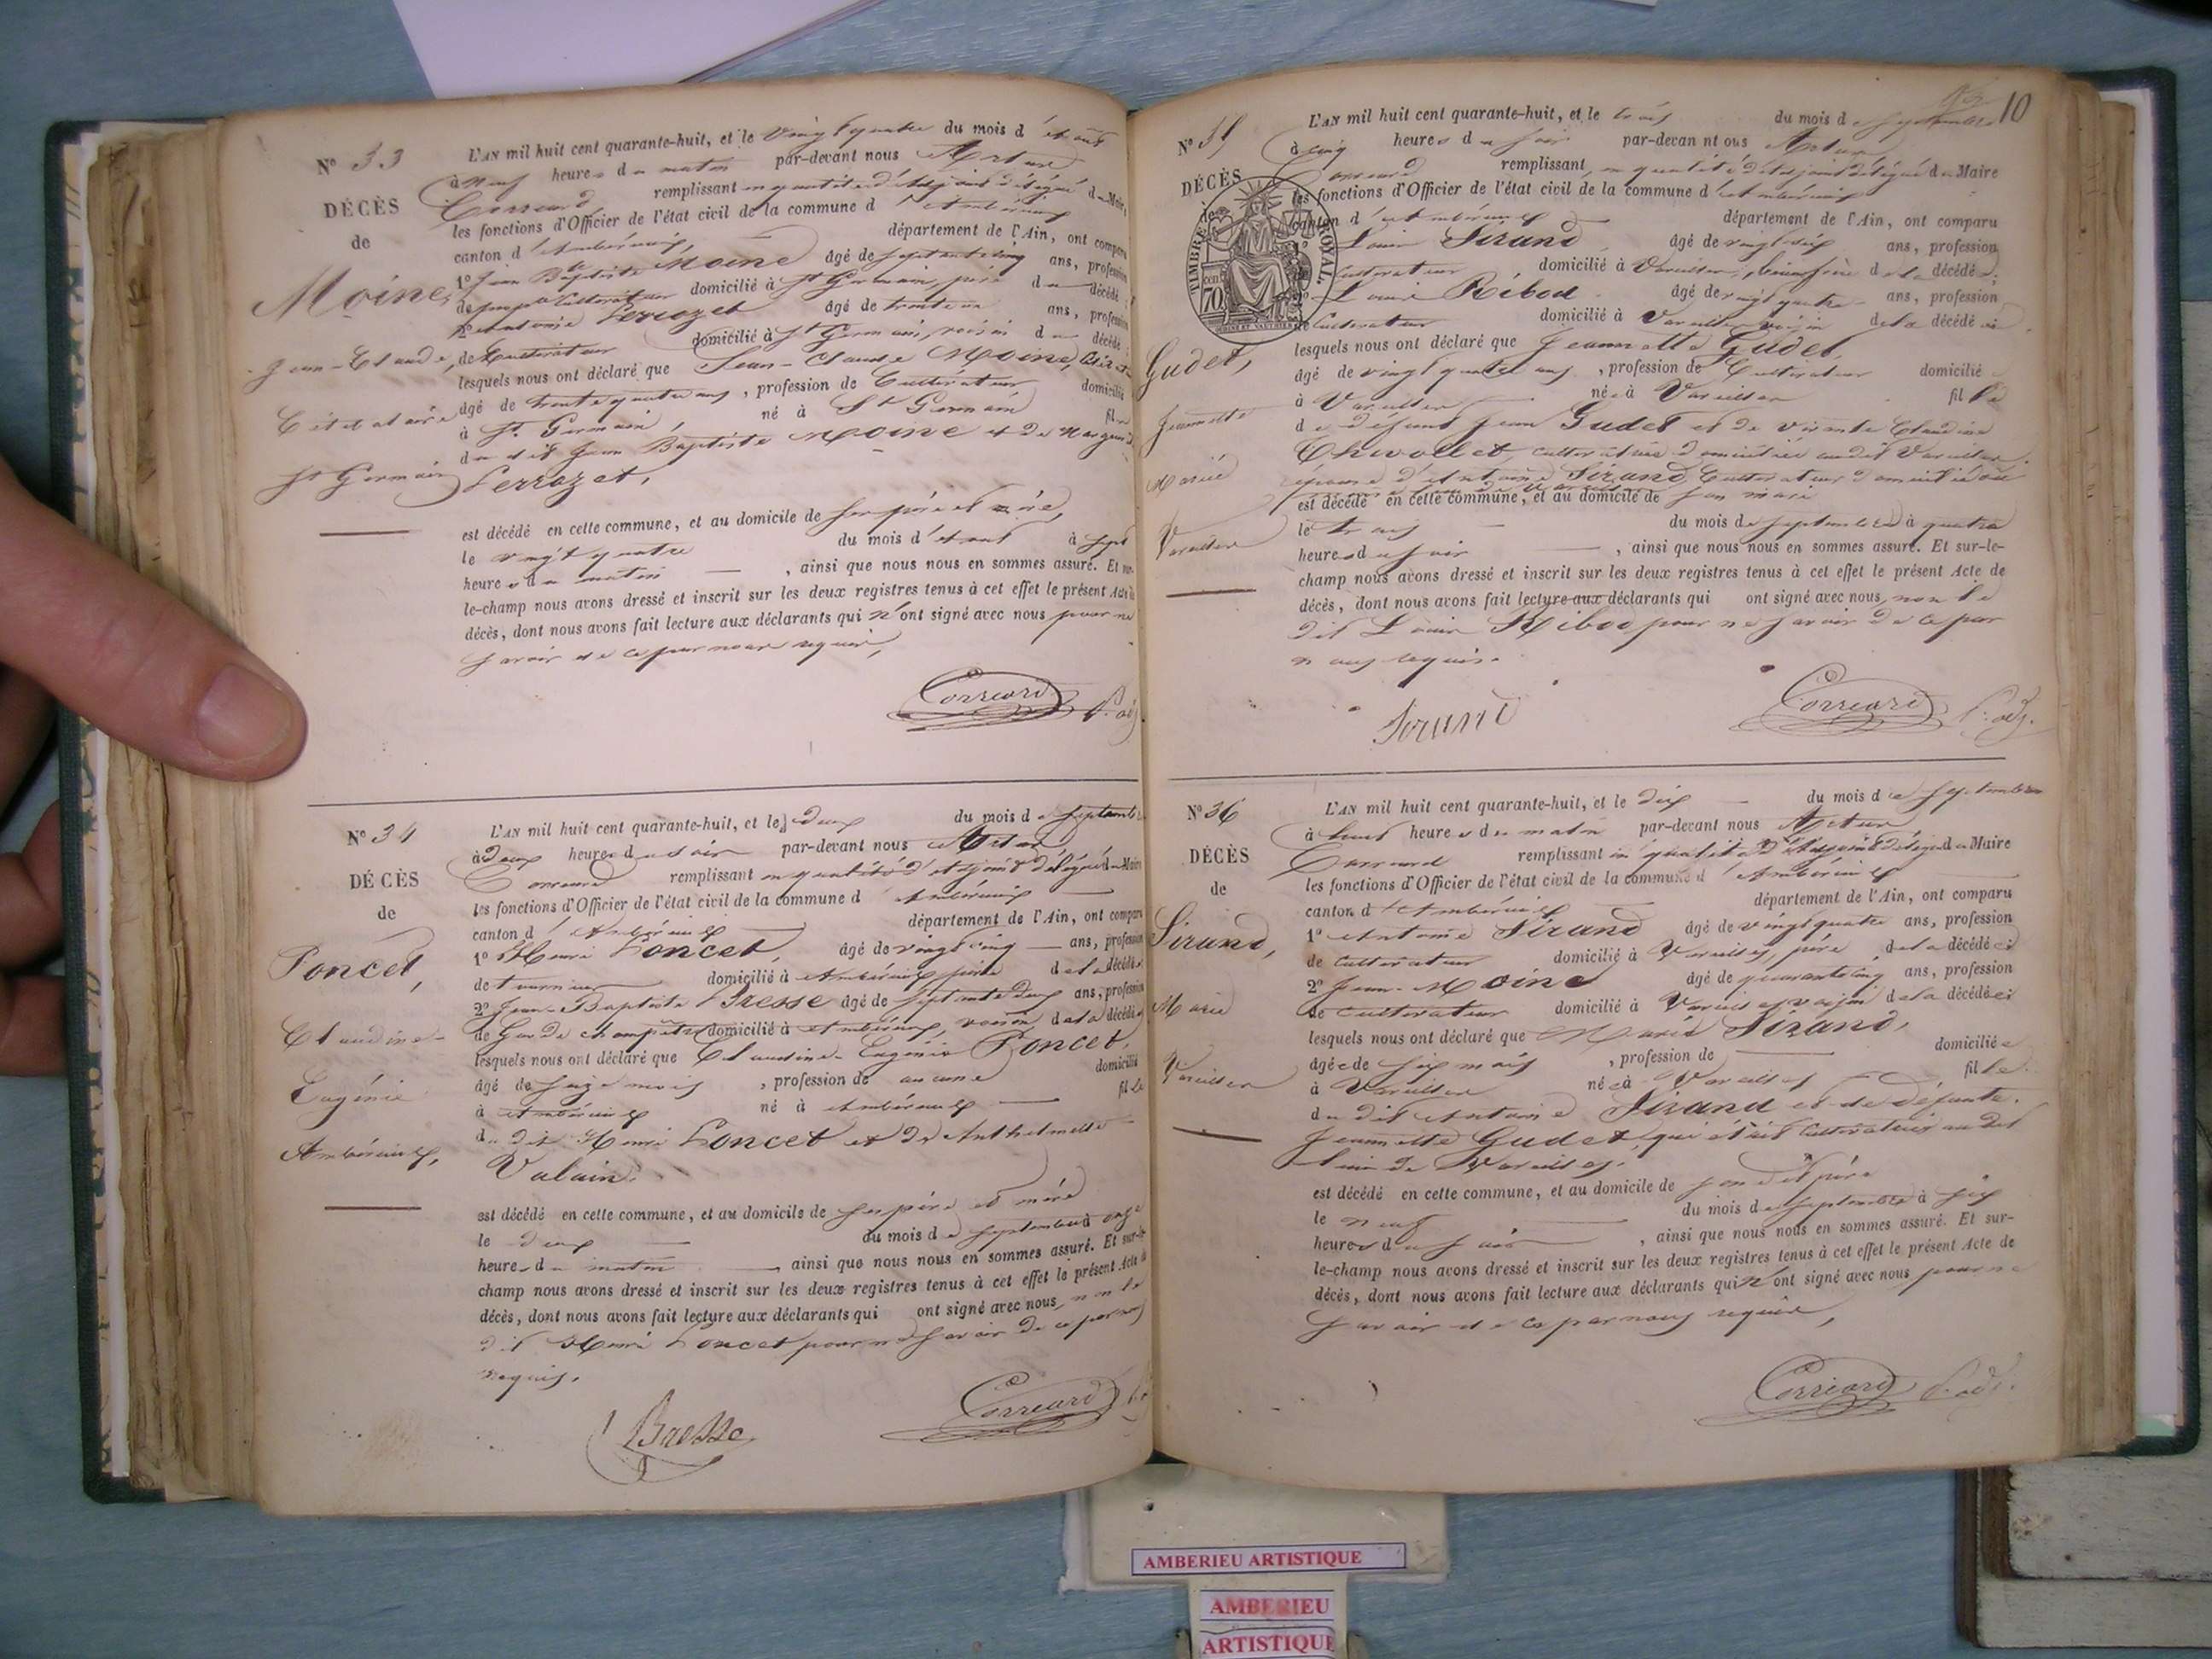 N° 33
DÉCÈS
de
Moine,
Jean-Claude,
Célibataire
St Germain
L'AN mil huit cent quarante-huit, et le vingt quatre du mois d'août
à neuf heures du matin par-devant nous Artur
Correard remplissant en qualité d'adjoint délégué du Maire,
les fonctions d'Officier de l'état civil de la commune d'Ambérieux
canton d'Ambérieux, département de l'Ain, ont comparu
1° Jean Bte Moine âgé de septante cinq ans, profession
de cultivateur domicilié à St Germain, père du décédé
2° Antoine Perrozet âgé de trente un ans, profession
de Cultivateur domicilié à St Germain, voisin du décédé
lesquels nous ont déclaré que Jean-Claude Moine,
âgé de trente quatre ans, profession de Cultivateur domicilié
à St Germain, né à St Germain fils
du dit Jean Baptiste Moine et de
Perrozet,
est décédé en cette commune, et au domicile de ses père et mère,
le vingt quatre du mois d'août à sept
heures du matin, ainsi que nous nous en sommes assuré. Et sur-
le-champ nous avons dressé et inscrit sur les deux registres tenus à cet effet le présent Acte de
décès, dont nous avons fait lecture aux déclarants qui n'ont signé avec nous pour ne
savoir de ce par nous requis,
Correard
N° 34
DÉCÈS
de
Poncet,
Claudine-
Eugénie
Ambérieux,
L'AN mil huit cent quarante-huit, et le deux du mois de septembre
à deux heures du soir par-devant nous Artur
Correard remplissant en qualité d'adjoint délégué du Maire
les fonctions d'Officier de l'état civil de la commune d'Ambérieux
canton d'Ambérieux département de l'Ain, ont comparu
1° Henri Poncet, âgé de vingt cinq ans, profession
de domicilié à Ambérieux père de la décédée
2° Jean-Baptiste Bresse âgé de septante deux ans, profession
de Garde champêtre domicilié à Ambérieux, voisin de la décédée
lesquels nous ont déclaré que Claudine-Eugénie Poncet,
âgé de seize mois, profession de aucune domicilié
à Ambérieux né à Ambérieux fille
du dit Henri Poncet et de Anthelmette
Valain.
est décédé en cette commune, et au domicile de ses père et mère
le deux du mois de septembre à onze
heures du matin, ainsi que nous nous en sommes assuré. Et sur-le-
champ nous avons dressé et inscrit sur les deux registres tenus à cet effet le présent Acte de
décès, dont nous avons fait lecture aux déclarants qui ont signé avec nous, non le
dit Henri Poncet pour ne savoir de ce par nous
requis.
Bresse
Correard
10
N° 35
DÉCÈS
de
TIMBRE ROYAL.
70
Gudet,
Jeannette
Mariée
Vareilles
L'AN mil huit cent quarante-huit, et le trois du mois de septembre
à cinq heures du soir par-devan nt ous Artur
Correard remplissant, en qualité d'adjoint délégué du Maire
les fonctions d'Officier de l'état civil de la commune d'Ambérieux
canton d'Ambérieux département de l'Ain, ont comparu
Louis Sirand âgé de vingt six ans, profession
Cultivateur domicilié à Vareilles, beau frère de la décédée,
Louis Ribod âgé de vingt quatre ans, profession
de Cultivateur domicilié à Vareilles voisin de la décédée
lesquels nous ont déclaré que Jeannette Gudet,
âgé de vingt quatre ans, profession de Cultivateur domicilié
à Vareilles née à Vareilles fille
de défunt Jean Gudet et de vivante Claudine
Chevollet cultivatrice domiciliée audit Vareilles
épouse d'Antoine Sirand, Cultivateur domicilié au
est décédé en cette commune, et au domicile de son mari
le trois du mois de septembre à quatre
heures du soir, ainsi que nous nous en sommes assuré. Et sur-le-
champ nous avons dressé et inscrit sur les deux registres tenus à cet effet le présent Acte de
décès, dont nous avons fait lecture aux déclarants qui ont signé avec nous, non le
dit Louis Ribod pour ne savoir de ce par
nous requis.
Sirand
Correard
N° 36
DÉCÈS
de
Sirand,
Marie
Vareilles
L'AN mil huit cent quarante-huit, et le dix du mois de septembre
à huit heures du matin par-devant nous Artur
Correard remplissant en qualité d'Adjoint délégué du Maire
les fonctions d'Officier de l'état civil de la commune d'Ambérieux
canton d'Ambérieux département de l'Ain, ont comparu
1° Antoine Sirand âgé de vingt quatre ans, profession
de cultivateur domicilié à Vareilles, père de la décédée
2° Jean Moine âgé de quarante cinq ans, profession
de cultivateur domicilié à Vareilles voisin de la décédée
lesquels nous ont déclaré que Marie Sirand,
âgée de six mois, profession de domiciliée
à Vareilles née à Vareilles fille
du dit Antoine Sirand et de défunte
Jeannette Gudet, qui était Cultivatrice au dit
lieu de Vareilles.
est décédé en cette commune, et au domicile de son dit père
le neuf du mois de septembre à six
heures du soir, ainsi que nous nous en sommes assuré. Et sur-
le-champ nous avons dressé et inscrit sur les deux registres tenus à cet effet le présent Acte de
décès, dont nous avons fait lecture aux déclarants qui n'ont signé avec nous pour ne
savoir de ce par nous requis,
Correard
AMBERIEU ARTISTIQUE
AMBERIEU
ARTISTIQUE